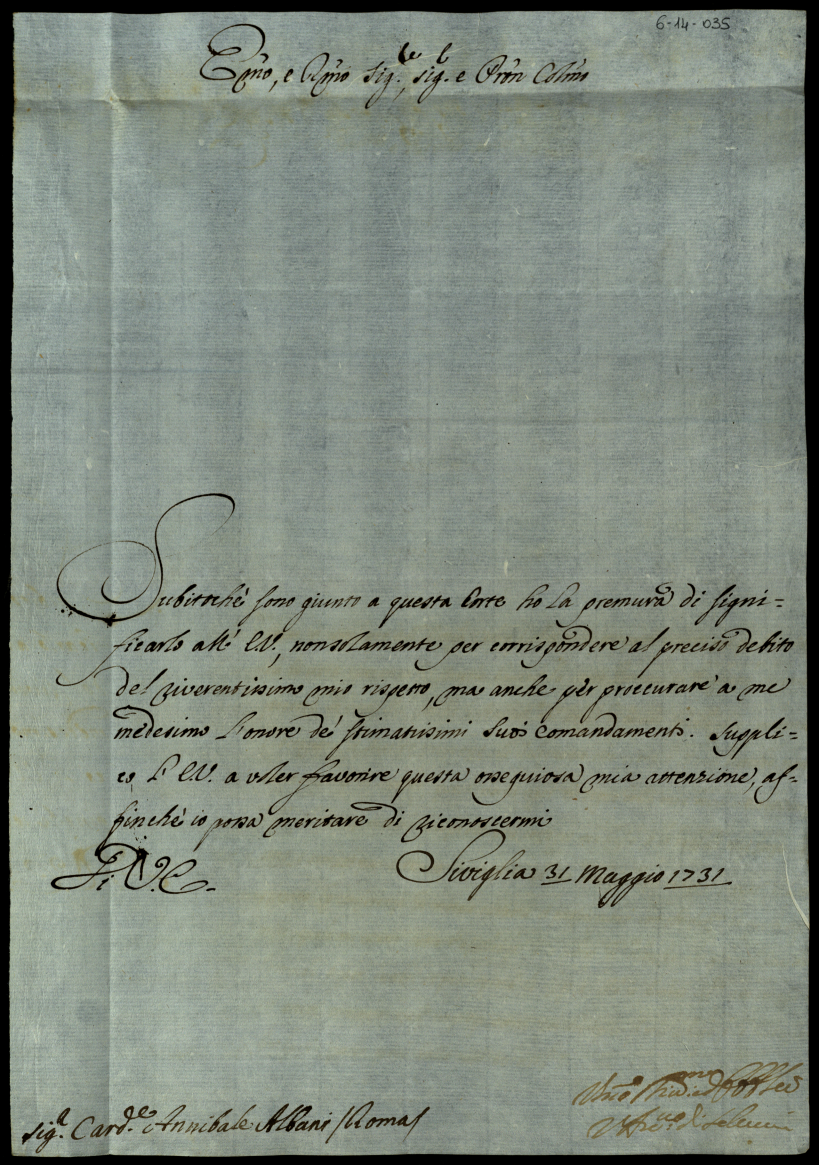 6-14-035
Emo, e Rmo Sig.re, Sig.r e Pron Colmo
Subitoché sono giunto a questa Corte ho la premura di signi=
ficarlo all' E.V., nonsolamente per corrispondere al preciso debito
del riverentissimo mio rispetto, ma anche per proccurare a me
medesimo l'onore de' stimatissimi suoi comandamenti. Suppli=
co l' E.V. a voler favorire questa ossequiosa mia attenzione, af=
finché io possa meritare di riconoscermi
Di V.E.
Siviglia 31 Maggio 1731
Sig.r Card.e Annibale Albani /Roma/